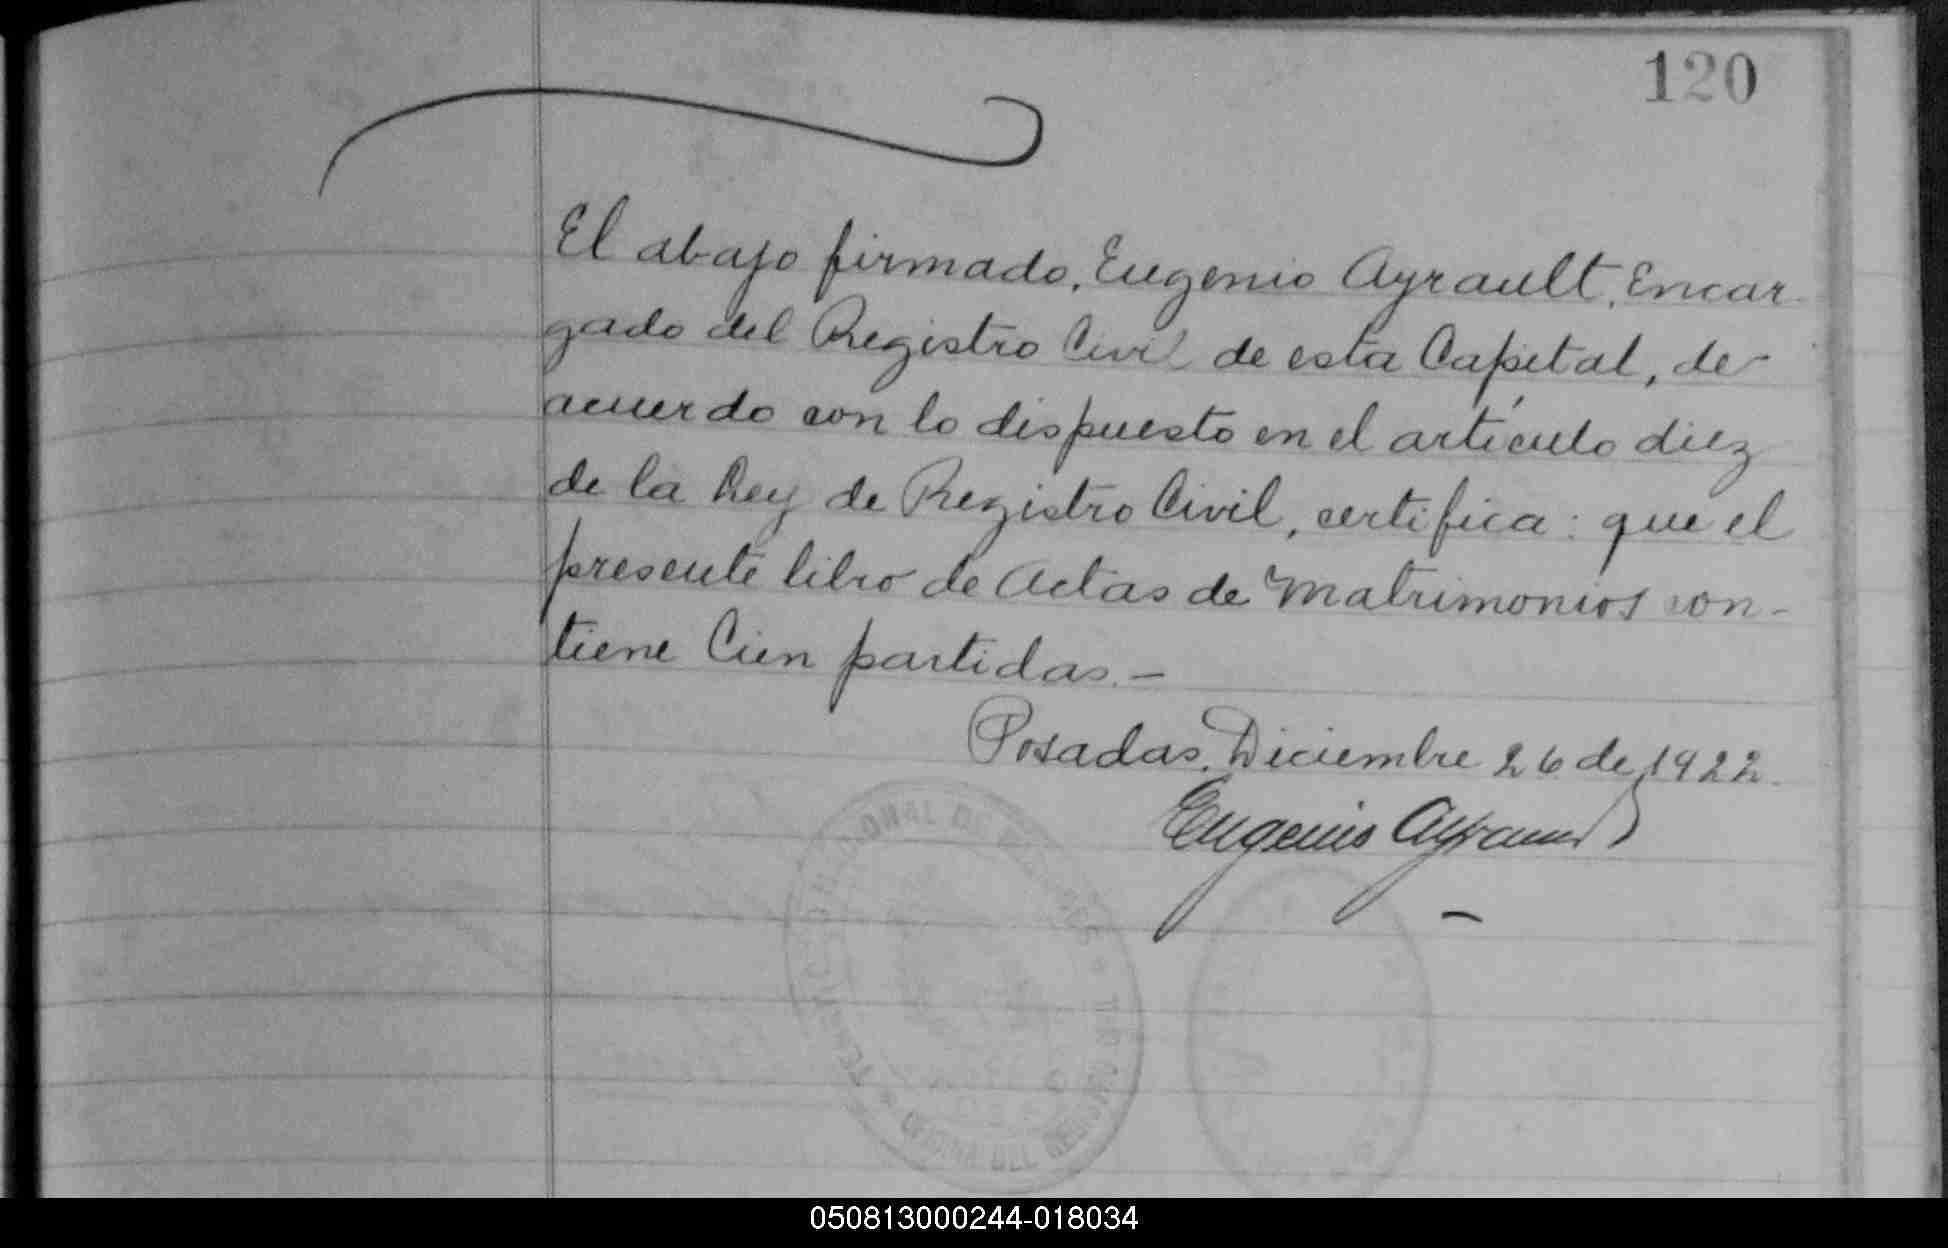 120
El abajo firmado, Eugenio Ayrault, Encar-
gado del Registro Civil de esta Capital, de
acuerdo con lo dispuesto en el artículo diez
de la Ley de Registro Civil, certifica: que el
presente libro de Actas de Matrimonios con-
tiene Cien partidas.-
Posadas, Diciembre 26 de 1922.
Eugenio Ayrault
OFICINA DEL REGISTRO CIVIL
050813000244-018034